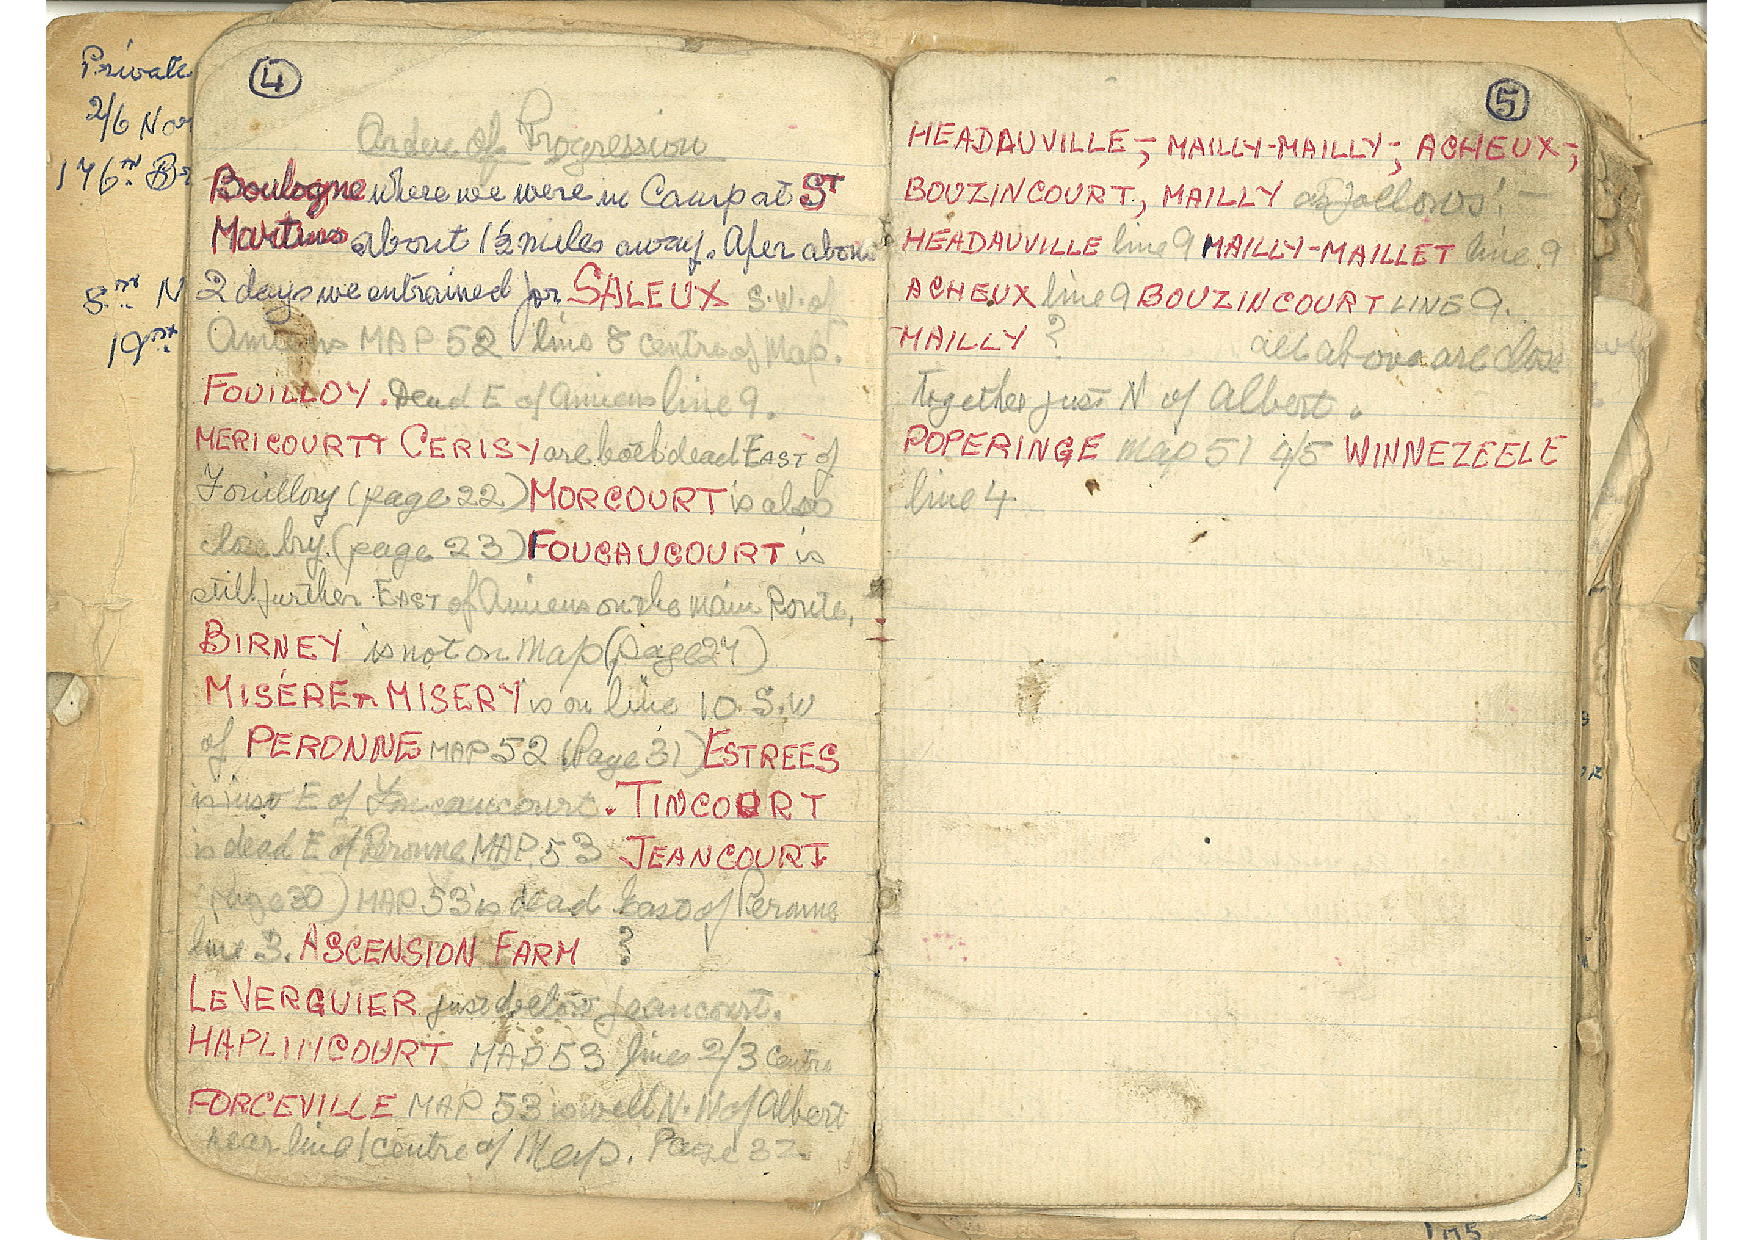 Private
2/6 Nor
176th Br
8th N
19th
4
Order of Progression
Boulogne where we were in Camp at St
Martins about 1½ miles away. After about
2 days we entrained for SALEUX S.W. of
Amiens MAP 52 line 8 centre of Map.
FOUILLOY. Dead E of Amiens line 9.
MERICOURT & CERISY are both dead EAST of
Fouilloy (page 22) MORCOURT is also
close by. (page 23) FOUCAUCOURT is
still further EAST of Amiens on the main Route,
BIRNEY is not on Map (page 24)
MISÉRE or MISERY is on line 10. S.W
of PERONNE MAP 52 (Page 31) ESTREES
is just E of Foucaucourt. TINCOURT
is dead E of Peronne MAP 53 JEANCOURT
(page 30) MAP 53 is dead East of Peronne
line 3. ASCENSION FARM ?
LE VERGUIER just below Jeancourt.
HAPLINCOURT MAP 53 lines 2/3 Centre
FORCEVILLE MAP 53 is well N.W of Albert
near line 1 centre of Map. Page 32.
5
HEADAUVILLE; MAILLY-MAILLY; ACHEUX;
BOUZINCOURT, MAILLY as follows:
HEADAUVILLE line 9 MAILLY-MAILLET line 9
ACHEUX line 9 BOUZINCOURT LINE 9.
MAILLY ? all above are close
together just N of Albert.
POPERINGE Map 51 4/5 WINNEZEELE
line 4